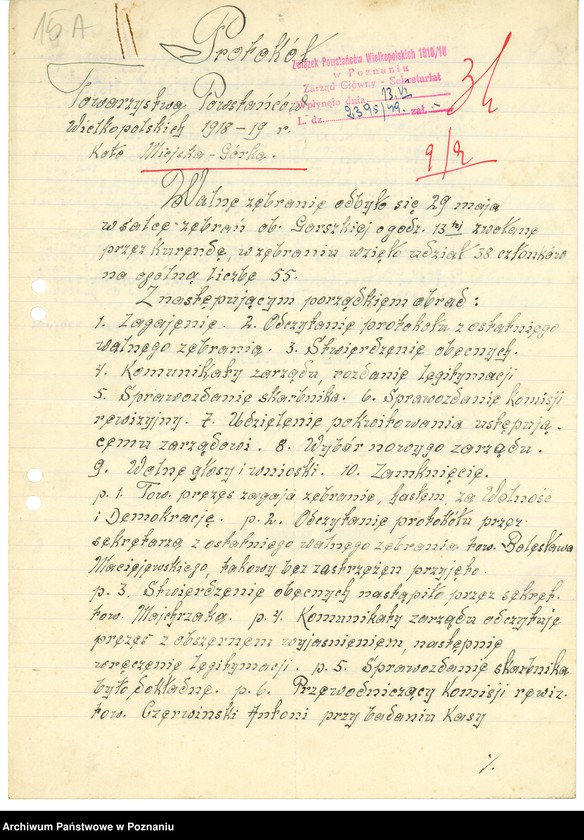 15A
Protokół
Związek Powstańców Wielkopolskich 1918/19
w Poznaniu
Zarząd Główny - Sekretariat
Wpłynęło dnia 13.VI
L. dz. 2395/49. zał. -
Towarzystwa Powstańców
Wielkopolskich 1918-19 r.
Koło Miejska-Górka.
9/2
Walne zebranie odbyło się 29 maja
w salce zebrań ob. Gorszkiej o godz. 13tej zwołane
przez kurendę, w zebraniu wzięło udział 38 członków
na ogólną liczbę 55.
Z następującym porządkiem obrad:
1. Zagajenie. 2. Odczytanie protokołu z ostatniego
walnego zebrania. 3. Stwierdzenie obecnych.
4. Komunikaty zarządu, rozdanie legitymacji
5. Sprawozdanie skarbnika. 6. Sprawozdanie komisji
rewizyjny. 7. Udzielenie pokwitowania ustępują-
cemu zarządowi. 8. Wybór nowygo zarządu.
9. Wolne głosy i wnioski. 10. Zamknięcie.
p. 1. Tow. prezes zagaja zebranie, hasłem, za Wolność
i Demokrację. p. 2. Odczytanie protokółu przez
sekretarza z ostatniego walnego zebrania tow. Bolesława
Maciejewskiego, takowy bez zastrzeżen przyjęto.
p. 3. Stwierdzenie obecnych nastąpiło przez sekret.
tow. Majchrzaka. p. 4. Komunikaty zarządu odczytuje
prezes z obszernem wyjasnieniem, następnie
wręczenie legitymacji. p. 5. Sprawozdanie skarbnika
było dokładne. p. 6. Przewodniczący Komisji rewiz-
tow. Czerwinski Antoni przy badaniu Kasy
%.
Archiwum Państwowe w Poznaniu